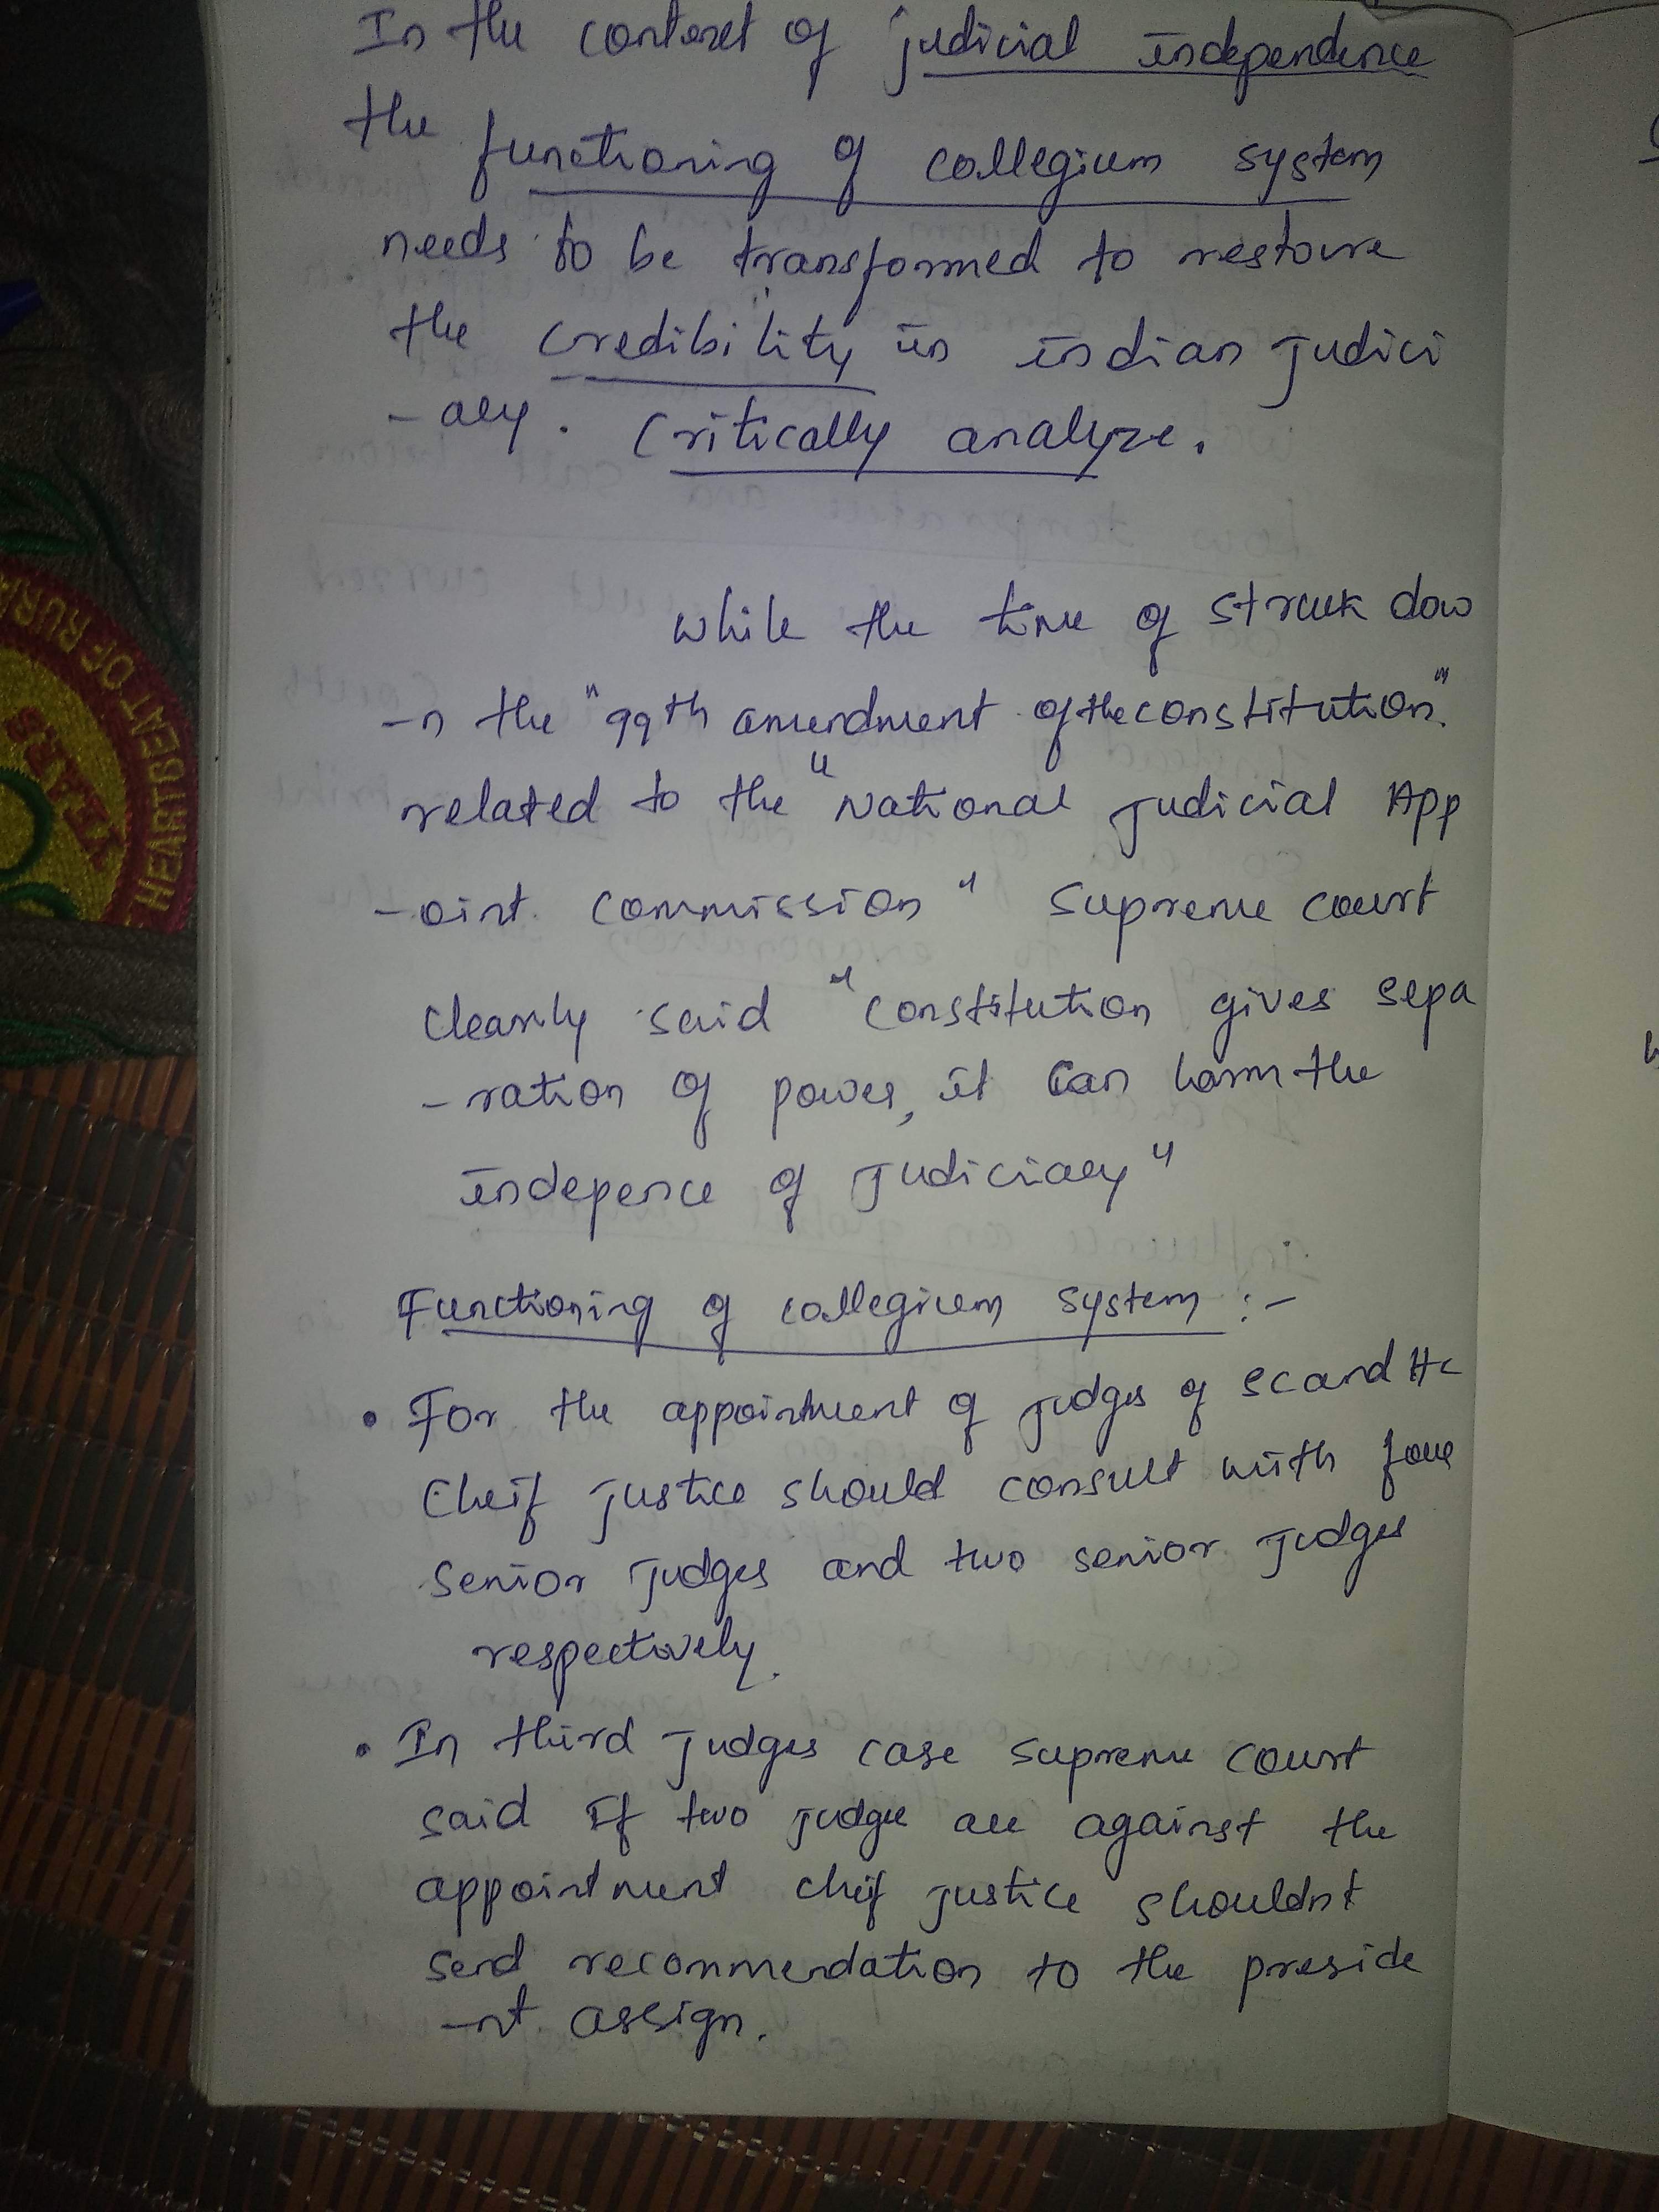 In the context of judicial independence
the functioning of collegium system
needs to be transformed to restore
the credibility in indian judici
-ary. Critically analyze.
while the time of struck dow
-n the "99th amendment of the constitution".
related to the "National Judicial App
-oint commission" Supreme court
clearly said "constitution gives sepa
-ration of power, it can harm the
indepence of Judiciary"
Functioning of collegium system :-
• For the appointment of judges of SC and HC
Cheif justice should consult with four
senior judges and two senior judges
respectively.
• In third judges case supreme court
said if two judge are against the
appointment chif justice shouldnt
send recommendation to the preside
-nt assign.
HEARTBEAT OF RURA
YEARS